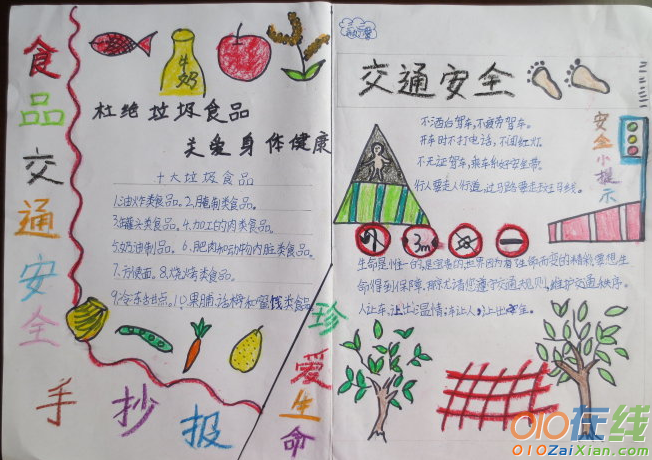 食品交通安全
手抄报
牛奶
杜绝垃圾食品
关爱身体健康
十大垃圾食品
1.油炸类食品。2.腌制类食品。
3.罐头类食品。4.加工的肉类食品。
5.奶油制品。6.肥肉和动物内脏类食品。
7.方便面。8.烧烤类食品。
9.冷冻甜点。10果脯、话梅和蜜饯类食品
珍爱生命
交通安全
不酒后驾车,不疲劳驾车。
开车时不打电话,不闯红灯。
不无证驾车,乘车系好安全带。
行人要走人行道,过马路要走斑马线。
安全小提示
3m
生命是惟一的,是宝贵的,世界因为有生命而变的精彩,要想生
命得到保障,那就请您遵守交通规则,维护交通秩序。
人让车,让出温情;车让人,让出安全。
010在线
010ZaiXian.com